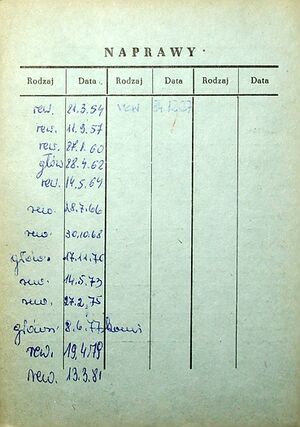 NAPRAWY
Rodzaj Data Rodzaj Data Rodzaj Data
rew. 21.3.54 rew
rew. 11.9.57
rew. 27.1.60
głów 28.4.62
rew. 14.5.64
rew. 28.7.66
rew. 30.10.68
głów.
rew. 14.5.73
rew. 27.2.75
główn. 2.6.77
rew. 19.4.79
rew. 13.3.81